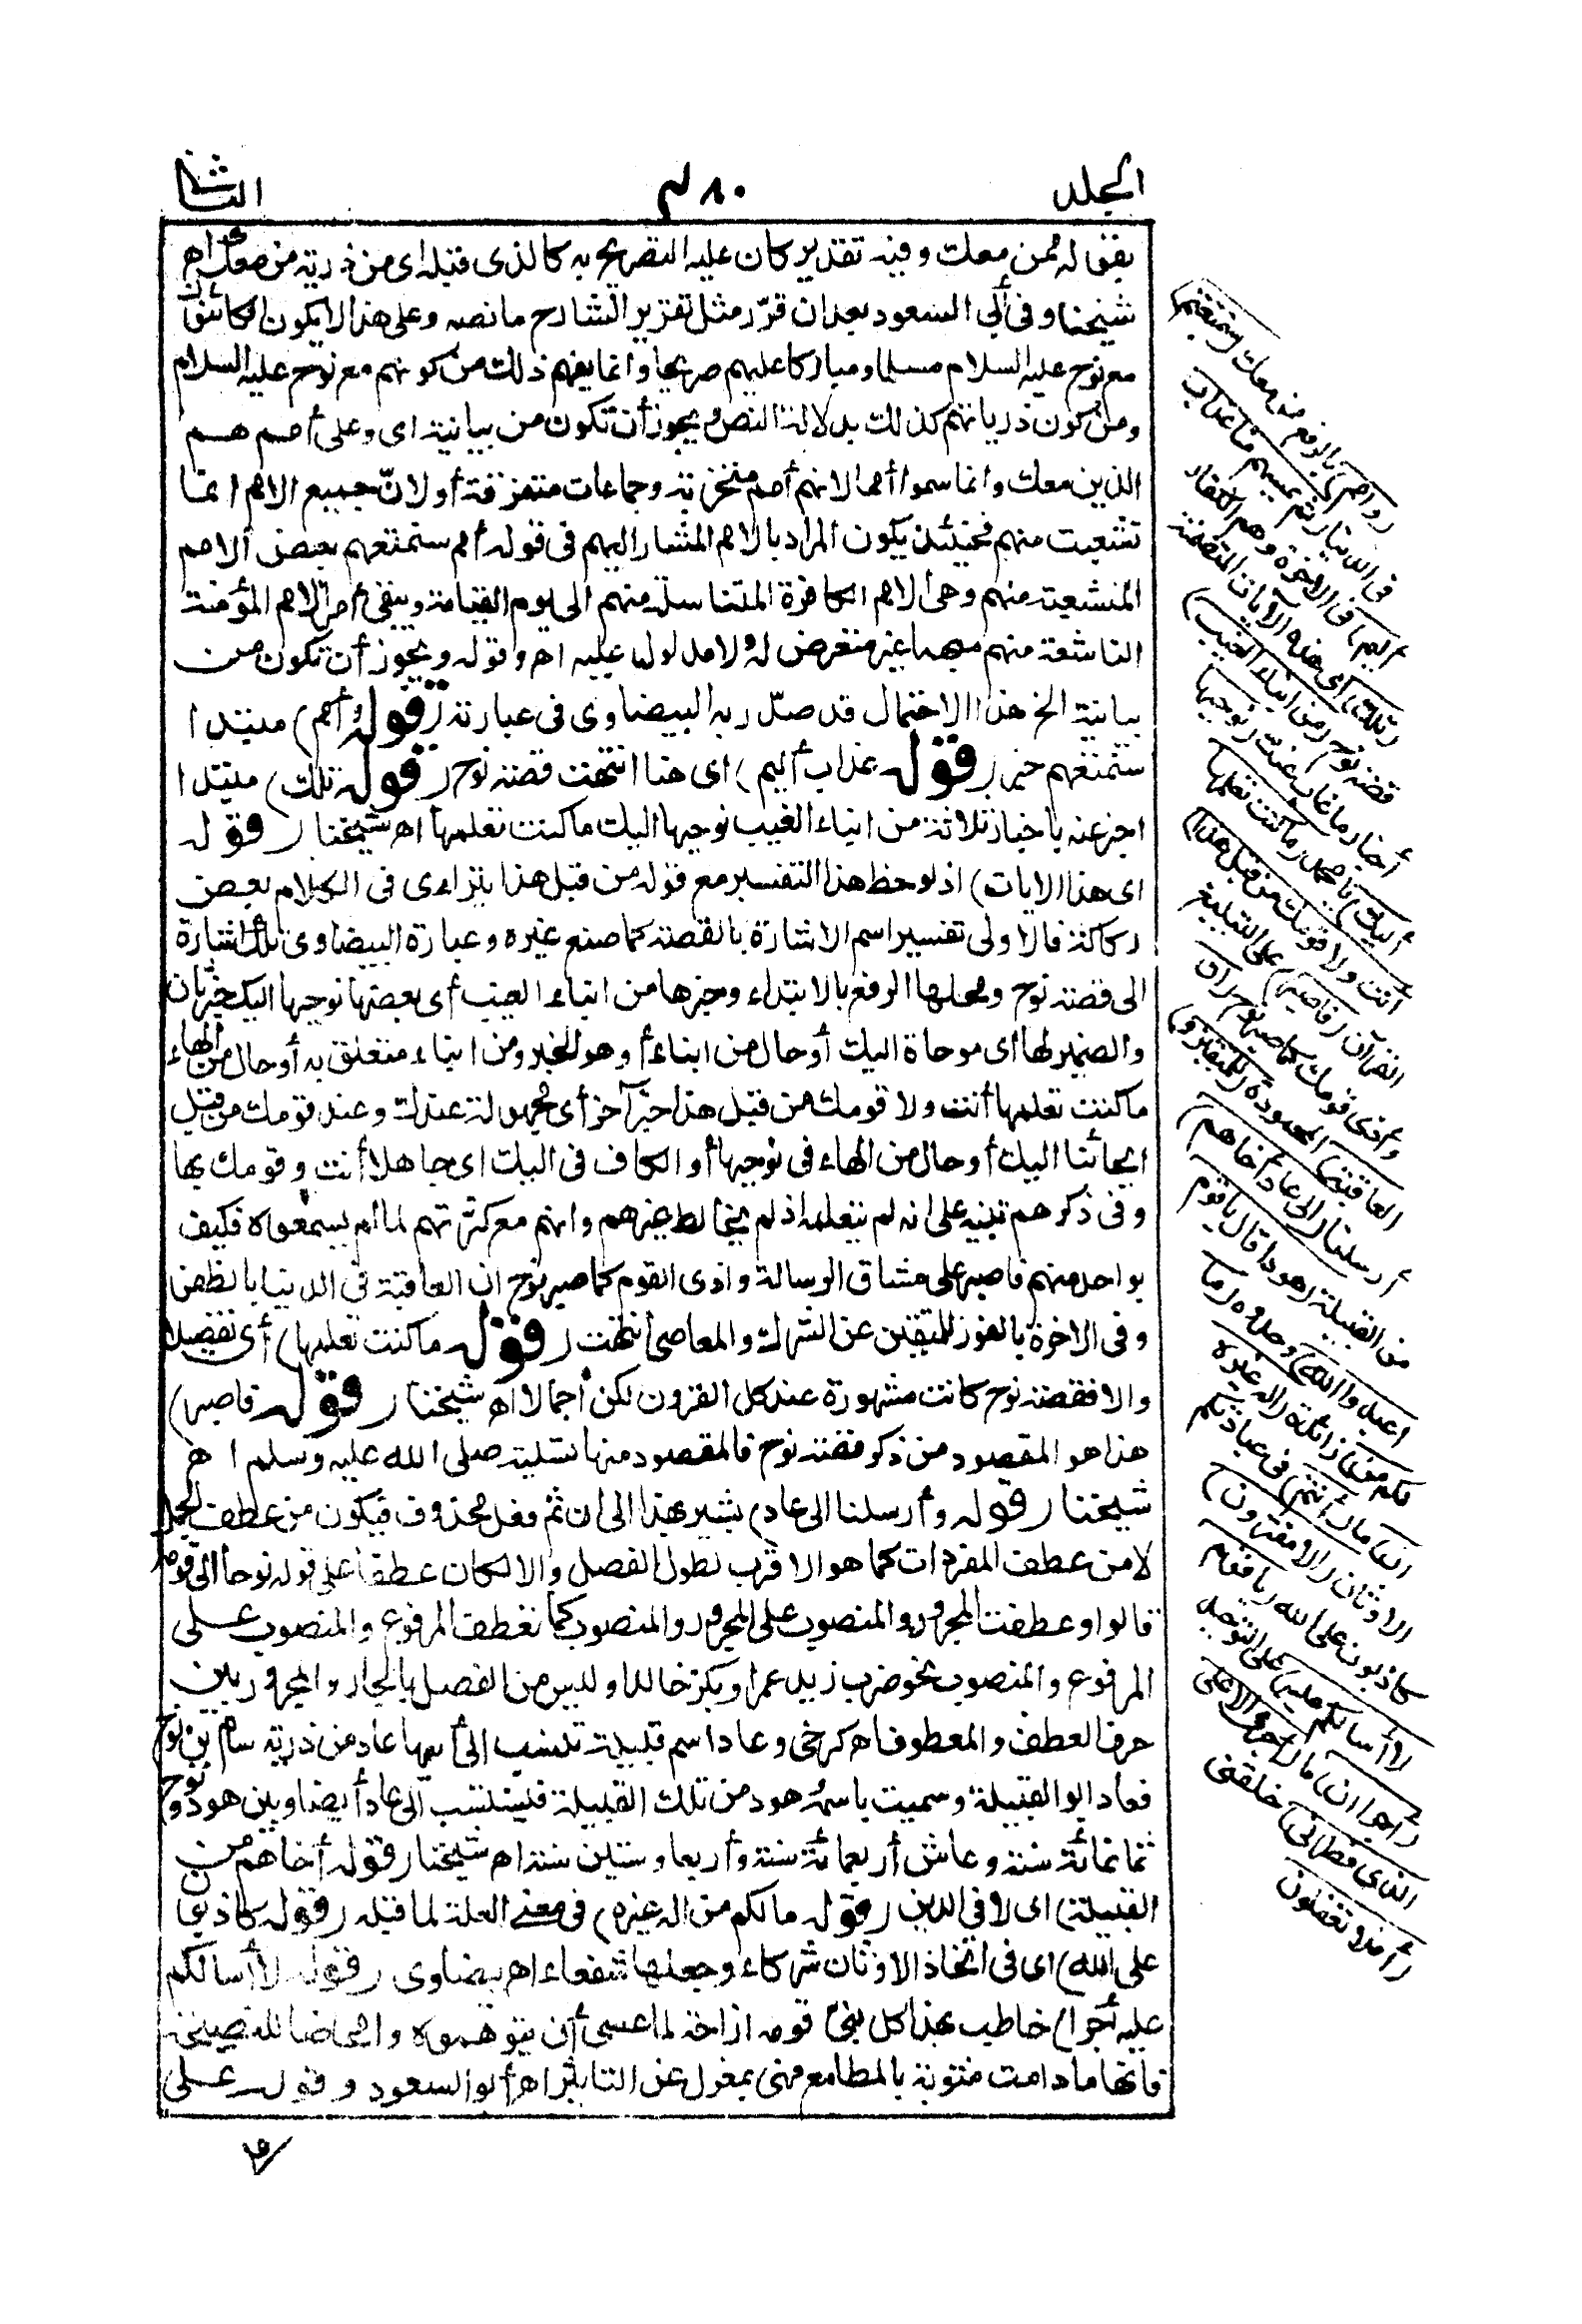 المجلد
٤٨٠
الثانى
بقوله ممن معك وفيه تقدير كان عليه التصريح به كالذى قبله اى من ذريته من معك اهـ
شيخنا وفى أبى السعود بعد ان قرّر مثل تقرير الشارح ما نصه وعلى هذا لا يكون الكائنون
مع نوح عليه السلام مسلما ومباركا عليهم صريحا وانما يفهم ذلك من كونهم مع نوح عليه السلام
ومن كون ذرياتهم كذلك بدلالة النص ويجوز أن تكون من بيانية اى وعلى أمم هم
الذين معك وانما سموا أمما لانهم أمم متحزبة وجماعات متفرقة أو لانّ جميع الامم انما
تشعبت منهم فحينئذ يكون المراد بالامم المشار اليهم فى قوله وأمم سنمتعهم بعض الامم
المتشعبة منهم وهى الامم الكافرة المتناسلة منهم الى يوم القيامة ويبقى أمر الامم المؤمنة
الناشئة منهم مبهما غير متعرض له ولا مدلول عليه اهـ وقوله ويجوز أن تكون من
بيانية الخ هذا الاحتمال قد صدّر به البيضاوى فى عبارته (قوله وأمم) مبتدا
سنمتعهم خبر (قوله عذاب أليم) اى هنا انتهت قصة نوح (قوله تلك) مبتدا
اخبر عنه باخبار ثلاثة من انباء الغيب نوحيها اليك ما كنت تعلمها اهـ شيخنا (قوله
اى هذا الايات) اذ لوحظ هذا التفسير مع قوله من قبل هذا يتراءى فى الكلام بعض
ركاكة فالاولى تفسير اسم الاشارة بالقصة كما صنع غيره وعبارة البيضاوى تلك اشارة
الى قصة نوح ومحلها الرفع بالابتداء وخبرها من انباء الغيب أى بعضها نوحيها اليك خبر ثان
والضمير لها اى موحاة اليك أو حال من انباء أو هو الخبر ومن انباء متعلق به أو حال من الهاء
ما كنت تعلمها أنت ولا قومك من قبل هذا خبر آخر أى مجهولة عندك وعند قومك من قبل
ايحائنا اليك أو حال من الهاء فى نوحيها أو الكاف فى اليك اى جاهلا أنت وقومك بها
وفى ذكرهم تنبيه على انه لم يتعلمه اذ لم يخالط غيرهم وانهم مع كثرتهم لما لم يسمعوه فكيف
بواحد منهم فاصبر على مشاق الرسالة واذى القوم كما صبر نوح ان العاقبة فى الدنيا بالظفر
وفى الاخرة بالفوز للمتقين عن الشرك والمعاصى انتهت (قوله ما كنت تعلمها) أى تفصيلا
والا فقصة نوح كانت مشهورة عند كل القرون لكن اجمالا اهـ شيخنا (قوله فاصبر)
هذا هو المقصود من ذكر قصة نوح فالمقصود منها تسلية صلى الله عليه وسلم اهـ
شيخنا (قوله وأرسلنا الى عاد) يشير بهذا الى ان ثم فعل محذوف فيكون من عطف الجمل
لا من عطف المفردات كما هو الاقرب لطول الفصل والا لكان عطفا على قوله نوحا الى قومه
قالوا وعطفت المجرور والمنصوب على المجرور والمنصوب كما تعطف المرفوع والمنصوب على
المرفوع والمنصوب نحو ضرب زيد عمرا وبكر خالدا وليس من الفصل بالجار والمجرور بين
حرف العطف والمعطوف اهـ كرخى وعاد اسم قبيلة تنسب الى أبيها عاد من ذرية سام بن نوح
فعاد ابو القبيلة وسميت باسمه وهود من تلك القبيلة فينتسب الى عاد أيضا وبين هود ونوح
ثمانمائة سنة وعاش أربعمائة سنة وأربعا وستين سنة اهـ شيخنا (قوله أخاهم من
القبيلة) اى لا فى الدين (قوله ما لكم من اله غيره) فى معنى العلة لما قبله (قوله كاذبون
على الله) اى فى اتخاذ الاوثان شركاء وجعلها شفعاء اهـ بيضاوى (قوله لا أسالكم
عليه أجرا) خاطب بهذا كل نبى قومه ازاحة لما عسى أن يتوهموه وامحاضا للنصيحة
فانها ما دامت مشوبة بالمطامع فهى بمعزل عن التاثير اهـ أبو السعود وقوله على
(وأمم) بالرفع ممن معك (سنمتعهم)
فى الدنيا (ثم يمسهم منا عذاب
أليم) فى الاخرة وهم الكفار
(تلك) أى هذه الآيات المتضمنة
قصة نوح (من انباء الغيب)
أخبار ما غاب عنك (نوحيها
اليك) يا محمد (ما كنت تعلمها
أنت ولا قومك من قبل هذا)
القرآن (فاصبر) على التبليغ
وأذى قومك كما صبر نوح (ان
العاقبة) المحمودة (للمتقين و)
أرسلنا (الى عاد أخاهم)
من القبيلة (هودا قال يا قوم
اعبدوا الله) وحدوه (ما
لكم من) زائدة (اله غيره
ان) ما (أنتم) فى عبادتكم
الاوثان (الا مفترون)
كاذبون على الله (يا قوم
لا أسالكم عليه) على التوحيد
(أجرا ان) ما (أجرى الا على
الذى فطرنى) خلقنى
(أفلا تعقلون